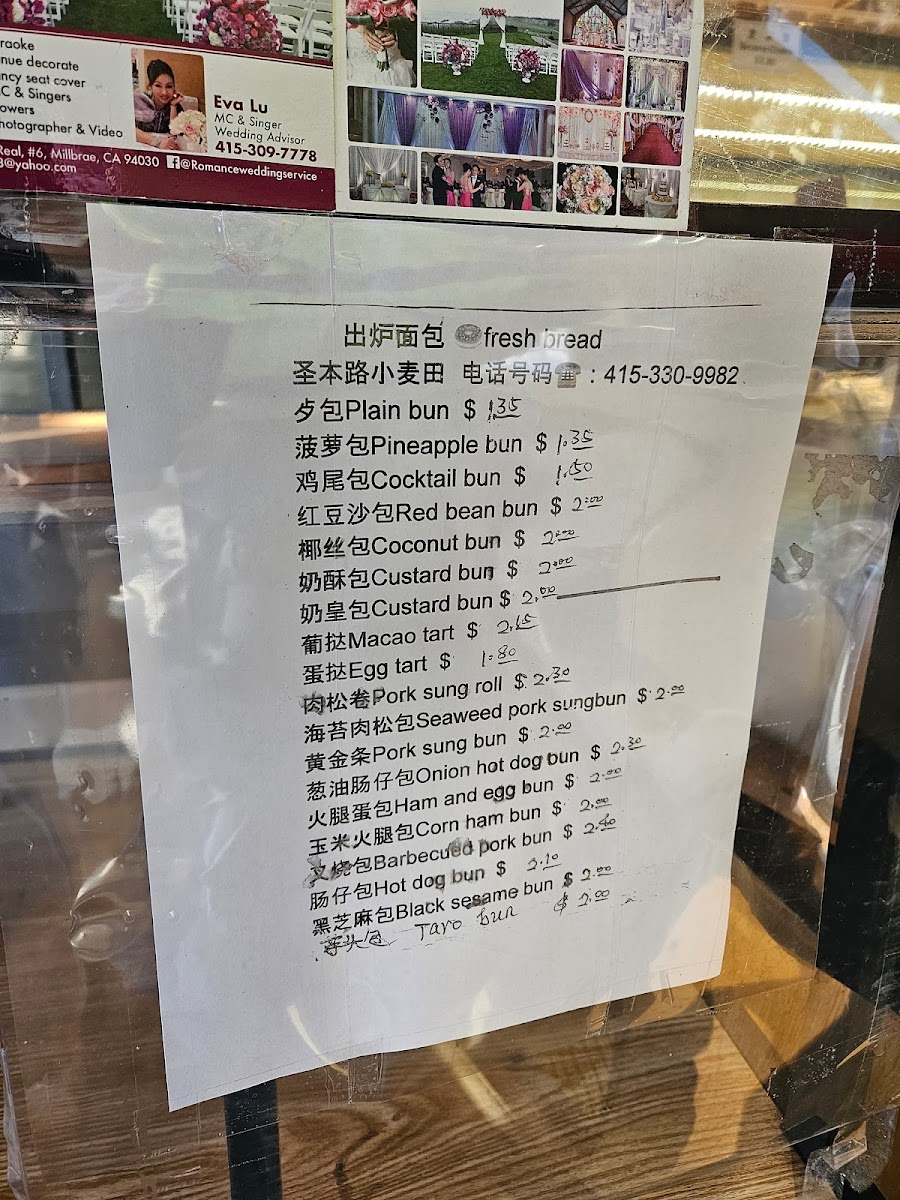 raoke
nue decorate
ncy seat cover
C & Singers
owers
hotographer & Video
Eva Lu
MC & Singer
Wedding Advisor
415-309-7778
Real, #6, Millbrae, CA 94030 @Romanceweddingservice
@yahoo.com
出炉面包 fresh bread
圣本路小麦田 电话号码☎ : 415-330-9982
歺包Plain bun $ 1.35
菠萝包Pineapple bun $ 1.35
鸡尾包Cocktail bun $ 1.50
红豆沙包Red bean bun $ 2.00
椰丝包Coconut bun $ 2.00
奶酥包Custard bun $ 2.00
奶皇包Custard bun $ 2.00
葡挞Macao tart $ 2.15
蛋挞Egg tart $ 1.80
肉松卷Pork sung roll $ 2.30
海苔肉松包Seaweed pork sungbun $ 2.00
黄金条Pork sung bun $ 2.00
葱油肠仔包Onion hot dog bun $ 2.30
火腿蛋包Ham and egg bun $ 2.00
玉米火腿包Corn ham bun $ 2.00
叉烧包Barbecued pork bun $ 2.40
肠仔包Hot dog bun $ 2.10
黑芝麻包Black sesame bun $ 2.00
芋头包 Taro bun $ 2.00